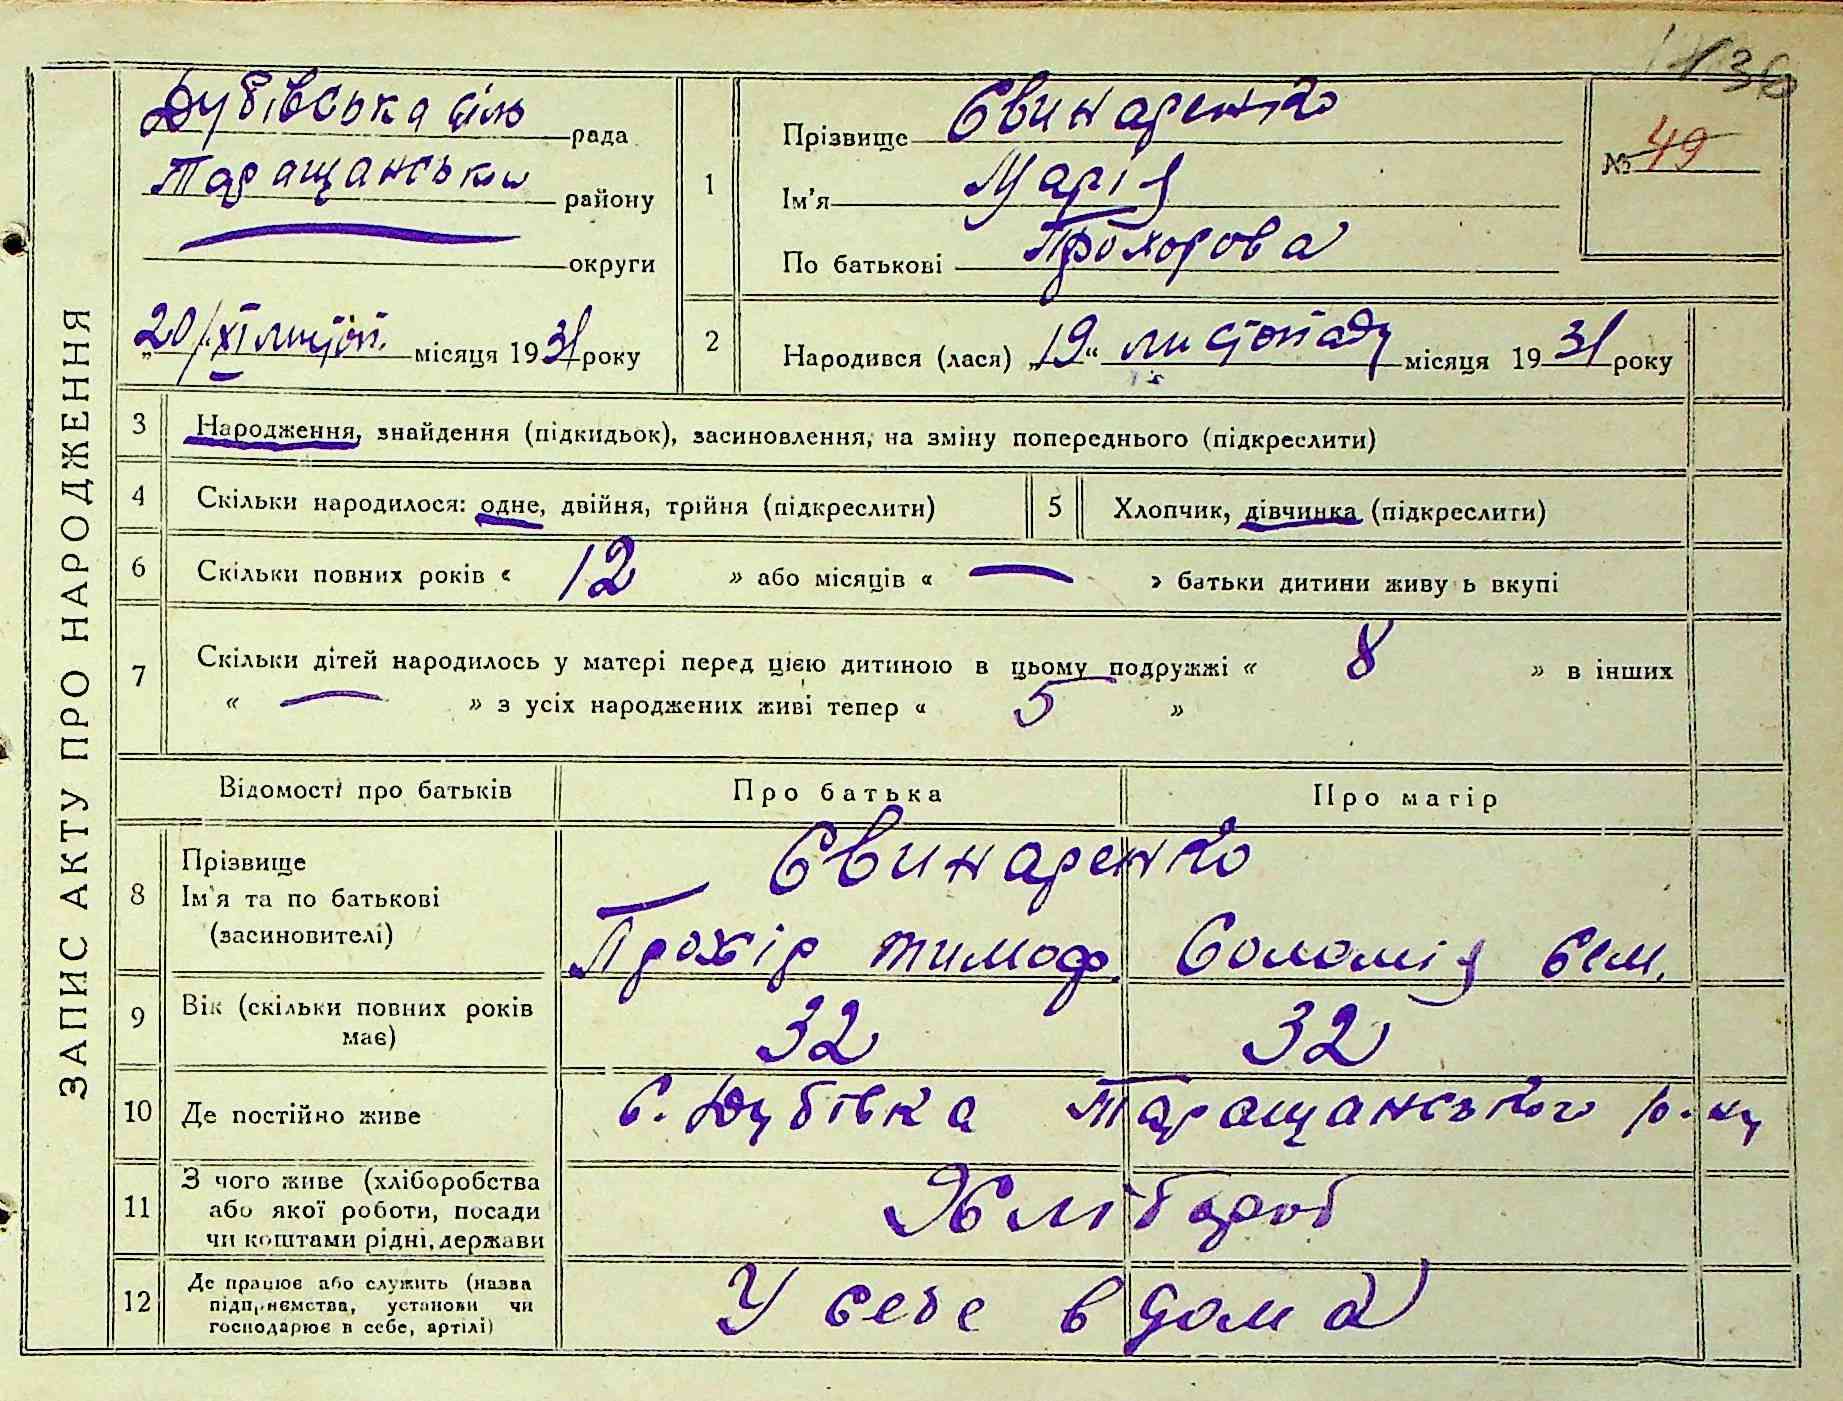 136
ЗАПИС АКТУ ПРО НАРОДЖЕННЯ
Дубівська сіль рада
Таращанськ району
округи
„20/XI листоп. місяця 1931 року
1
Прізвище Свинаренко
Ім'я Марія
По батькові Прохорова
№ 49
2
Народився (лася) „19“ листопаду місяця 1931 року
3 Народження, знайдення (підкидьок), засиновлення, на зміну попереднього (підкреслити)
4 Скільки народилося: одне, двійня, трійня (підкреслити)
5 Хлопчик, дівчинка (підкреслити)
6 Скільки повних років « 12 » або місяців « — » батьки дитини живу ь вкупі
7 Скільки дітей народилось у матері перед цією дитиною в цьому подружжі « 8 » в інших
« — » з усіх народжених живі тепер « 5 »
Відомості про батьків Про батька Про матір
8 Прізвище
Ім'я та по батькові
(засиновителі)
Свинаренко
Прохір Тимоф. Соломія Сем.
9 Вік (скільки повних років
має)
32 32
10 Де постійно живе с. Дубівка Таращанського р-ну
11 З чого живе (хліборобства
або якої роботи, посади
чи коштами рідні, держави
Хлібороб
12 Де працює або служить (назва
підприємства, установи чи
господарює в себе, артілі)
У себе в дома